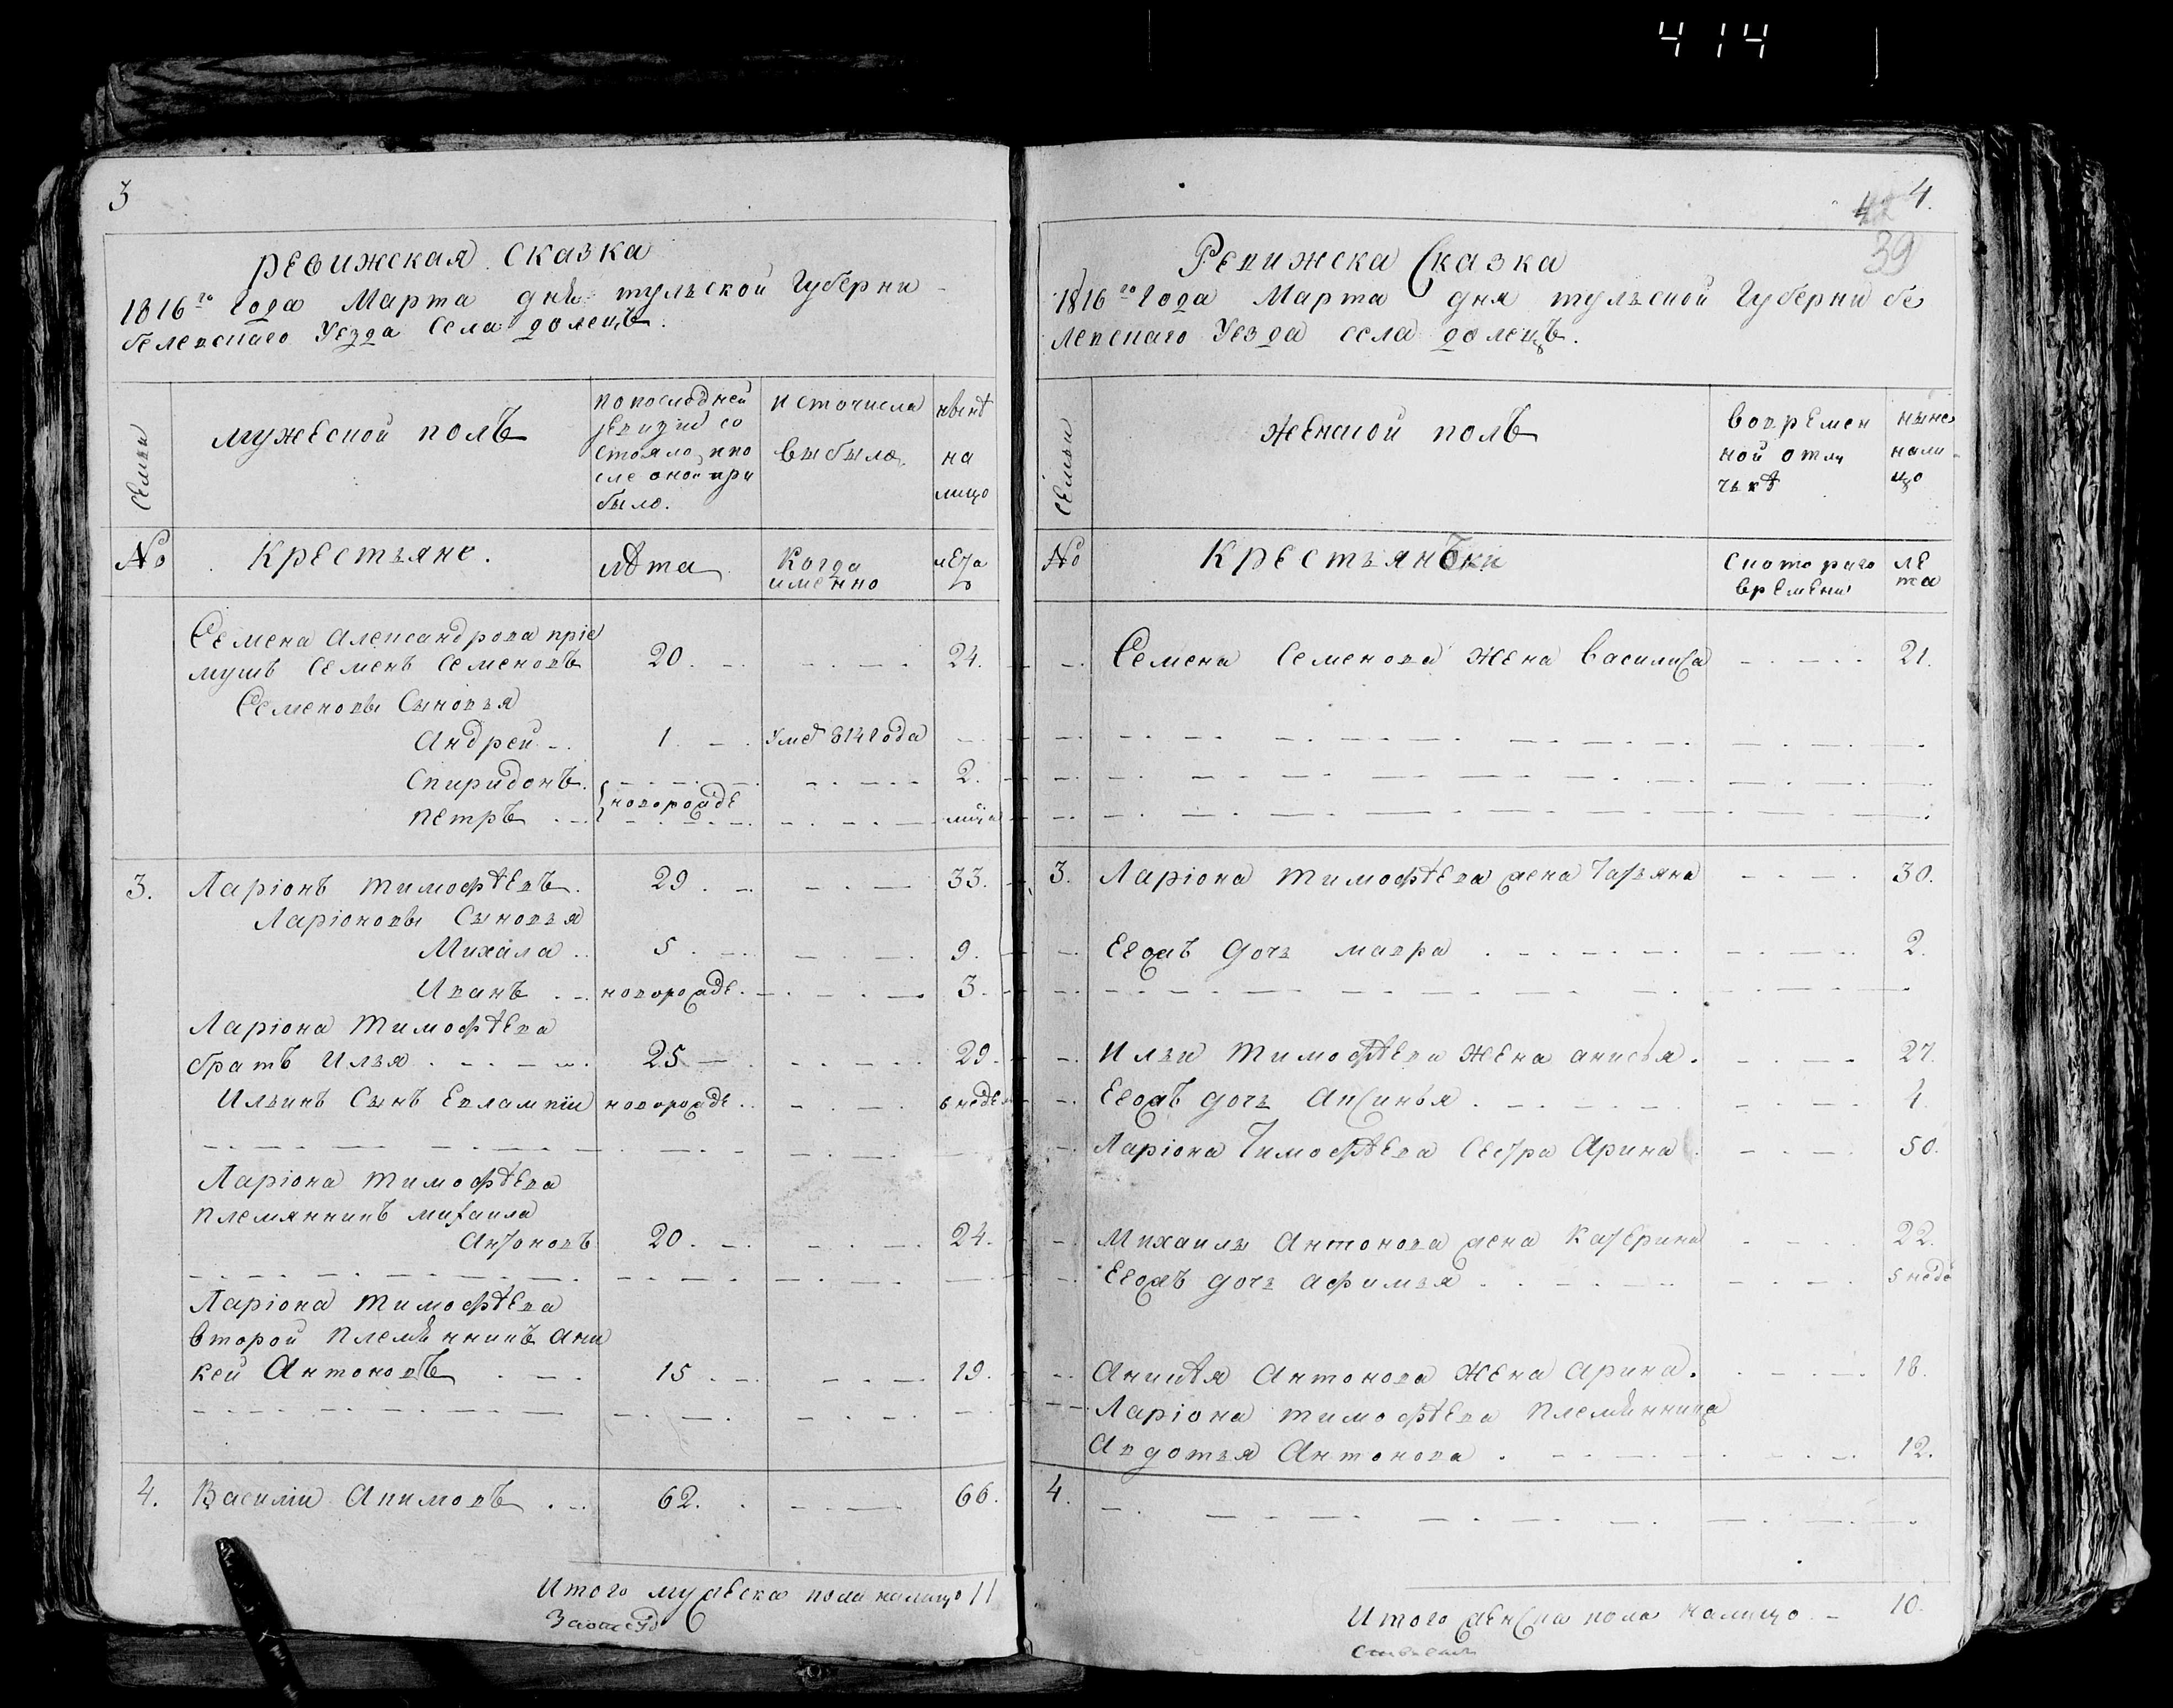 414
3
ревижская сказка
1816го года Марта дня тульской Губерни
белевскаго Уезда Села долецъ.
Семьи
мужеской полъ
по последней
ревизии со
стояло и по
сле оной при
было.
ис то числа
выбыло
ныне
на
лицо
№
Крестьяне.
лѣта
Когда
именно
лета
Семена Александрова пріе
мушъ Семенъ Семеновъ 20. 24.
Семеновы Сыновья
Андрей 1. Умеръ 814 года
Спиридонъ 2.
новорожде
петръ
3. Ларіонъ тимофѣевъ. 29. 33.
Ларіоновы Сыновья
Михаила 5. 9.
Иванъ новорожде. 3.
Ларіона Тимофѣева
братъ Илья 25 29.
Ильинъ Сынъ Евлампiи новорожде. 6 неде
Ларіона тимофѣева
племянникъ михаила
Антоновъ 20. 24.
Ларіона тимофѣева
второй племянникъ ани
кей Антоновъ 15 19.
4. Василіи Акимовъ 62. 66.
Итого мужеска пола налицо 11
4.
39
Ревижска Сказка
1816го года Марта дня тульской Губернии бе
левскаго Уезда села долецъ.
Семьи
женской полъ
во времен
ной отлу
чкѣ
ныне
нали
цо
№
Крестьянъки
С котораго
времени
ле
та
Семена Семенова жена Василиса 21.
3. Ларіона тимофѣева жена Татьяна 30.
Егожъ дочь мавра 2.
Ильи тимофѣева жена анисья. 27.
Егожъ дочь Аксинья 1.
Ларіона Тимофѣева Сестра Арина 50.
Михаилы Антонова жена Катерина 22.
Егожъ дочь афимья 5 неде
Аникѣя Антонова жена арина. 18.
Ларіона тимофѣева племянница
Авдотья Антонова 12.
4.
Итого женска пола налицо 10.